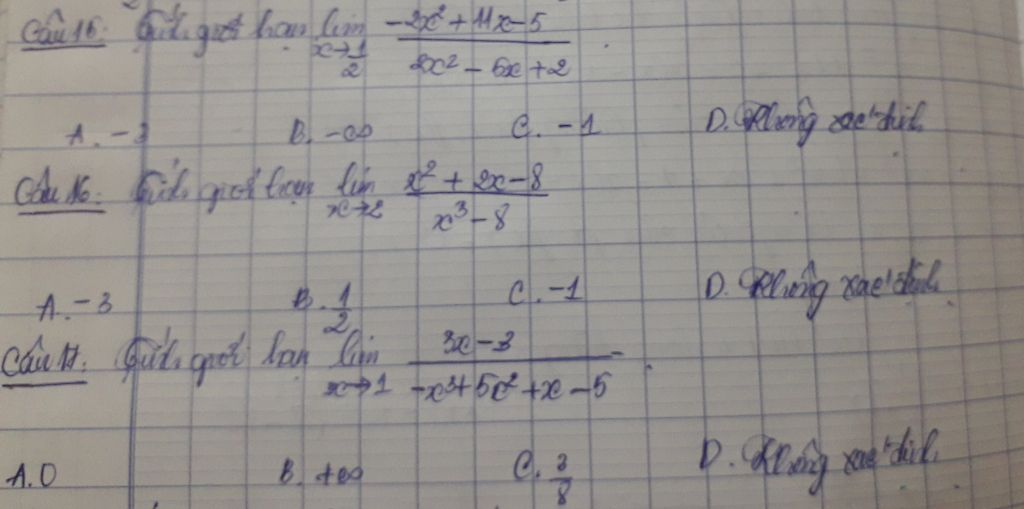 Câu 15: Tính giới hạn lim x→1/2 (-2x² + 11x - 5)/(2x² - 5x + 2).
A. -3 B. -∞ C. -1 D. Không xác định
Câu 16: Tính giới hạn lim x→2 (x² + 2x - 8)/(x³ - 8)
A. -3 B. 1/2 C. -1 D. Không xác định
Câu 17: Tính giới hạn lim x→1 (3x - 3)/(-x³ + 5x² + x - 5).
A. 0 B. +∞ C. 3/8 D. Không xác định